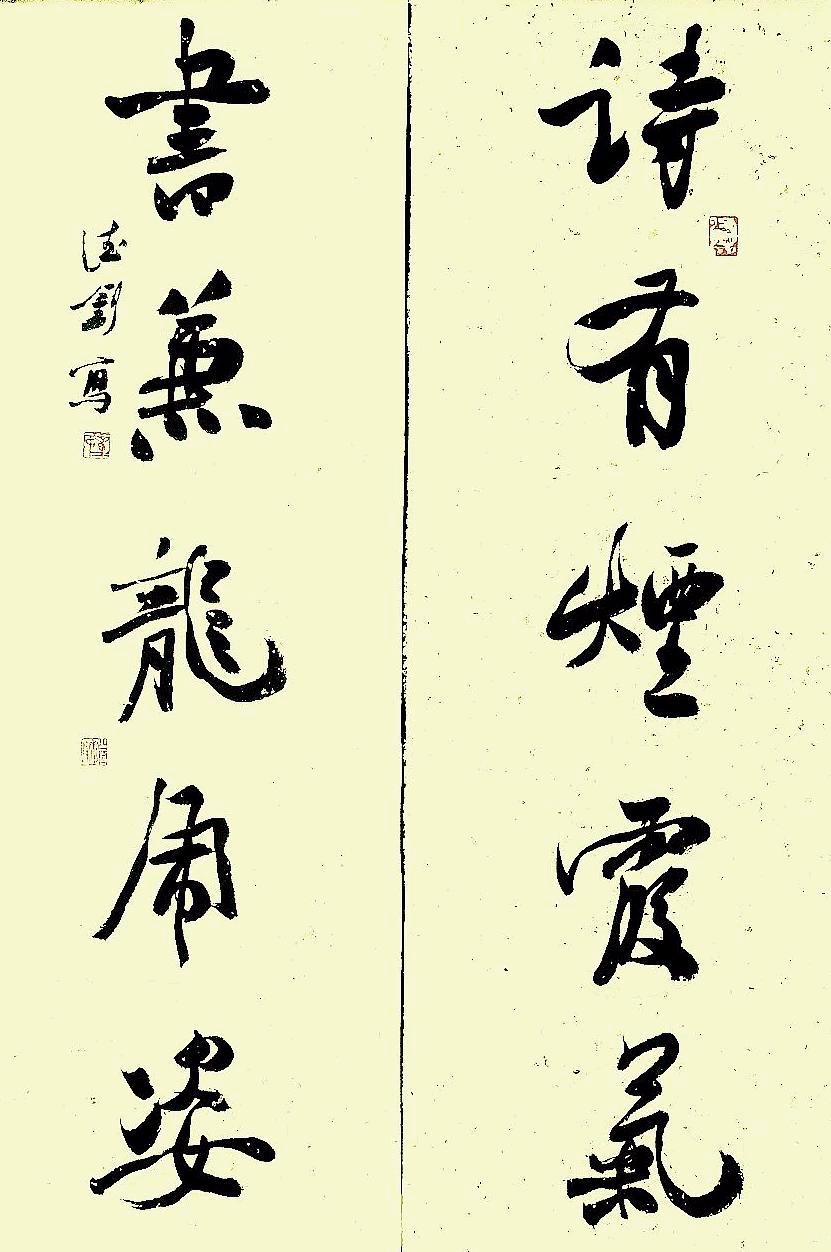 詩有煙霞氣
書兼龍虎姿
德劉寫